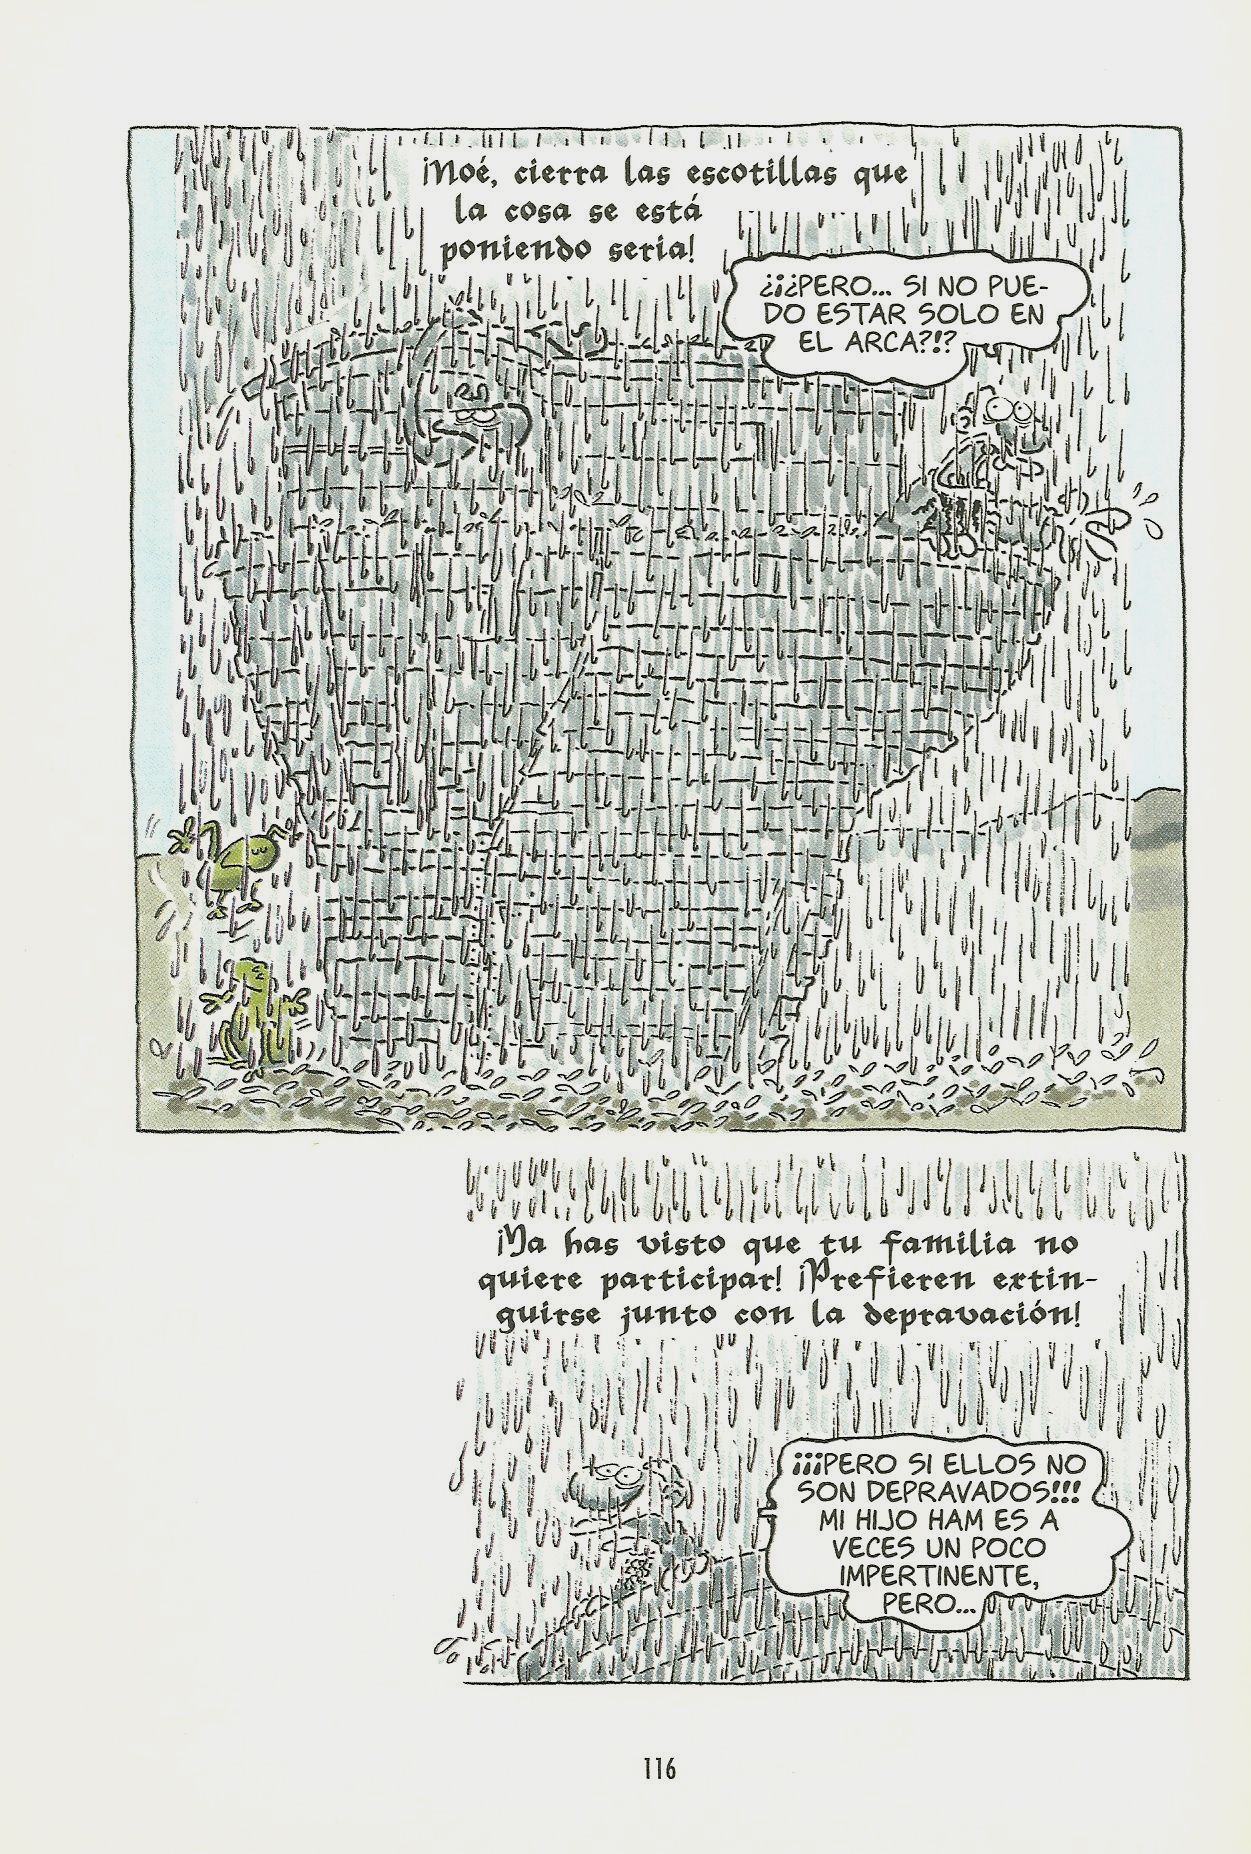 ¡Noé, cierra las escotillas que
la cosa se está
poniendo seria!
¿¡¿PERO... SI NO PUE-
DO ESTAR SOLO EN
EL ARCA?!?
¡Ya has visto que tu familia no
quiere participar! ¡Prefieren extin-
guirse junto con la depravación!
¡¡¡PERO SI ELLOS NO
SON DEPRAVADOS!!!
MI HIJO HAM ES A
VECES UN POCO
IMPERTINENTE,
PERO...
116